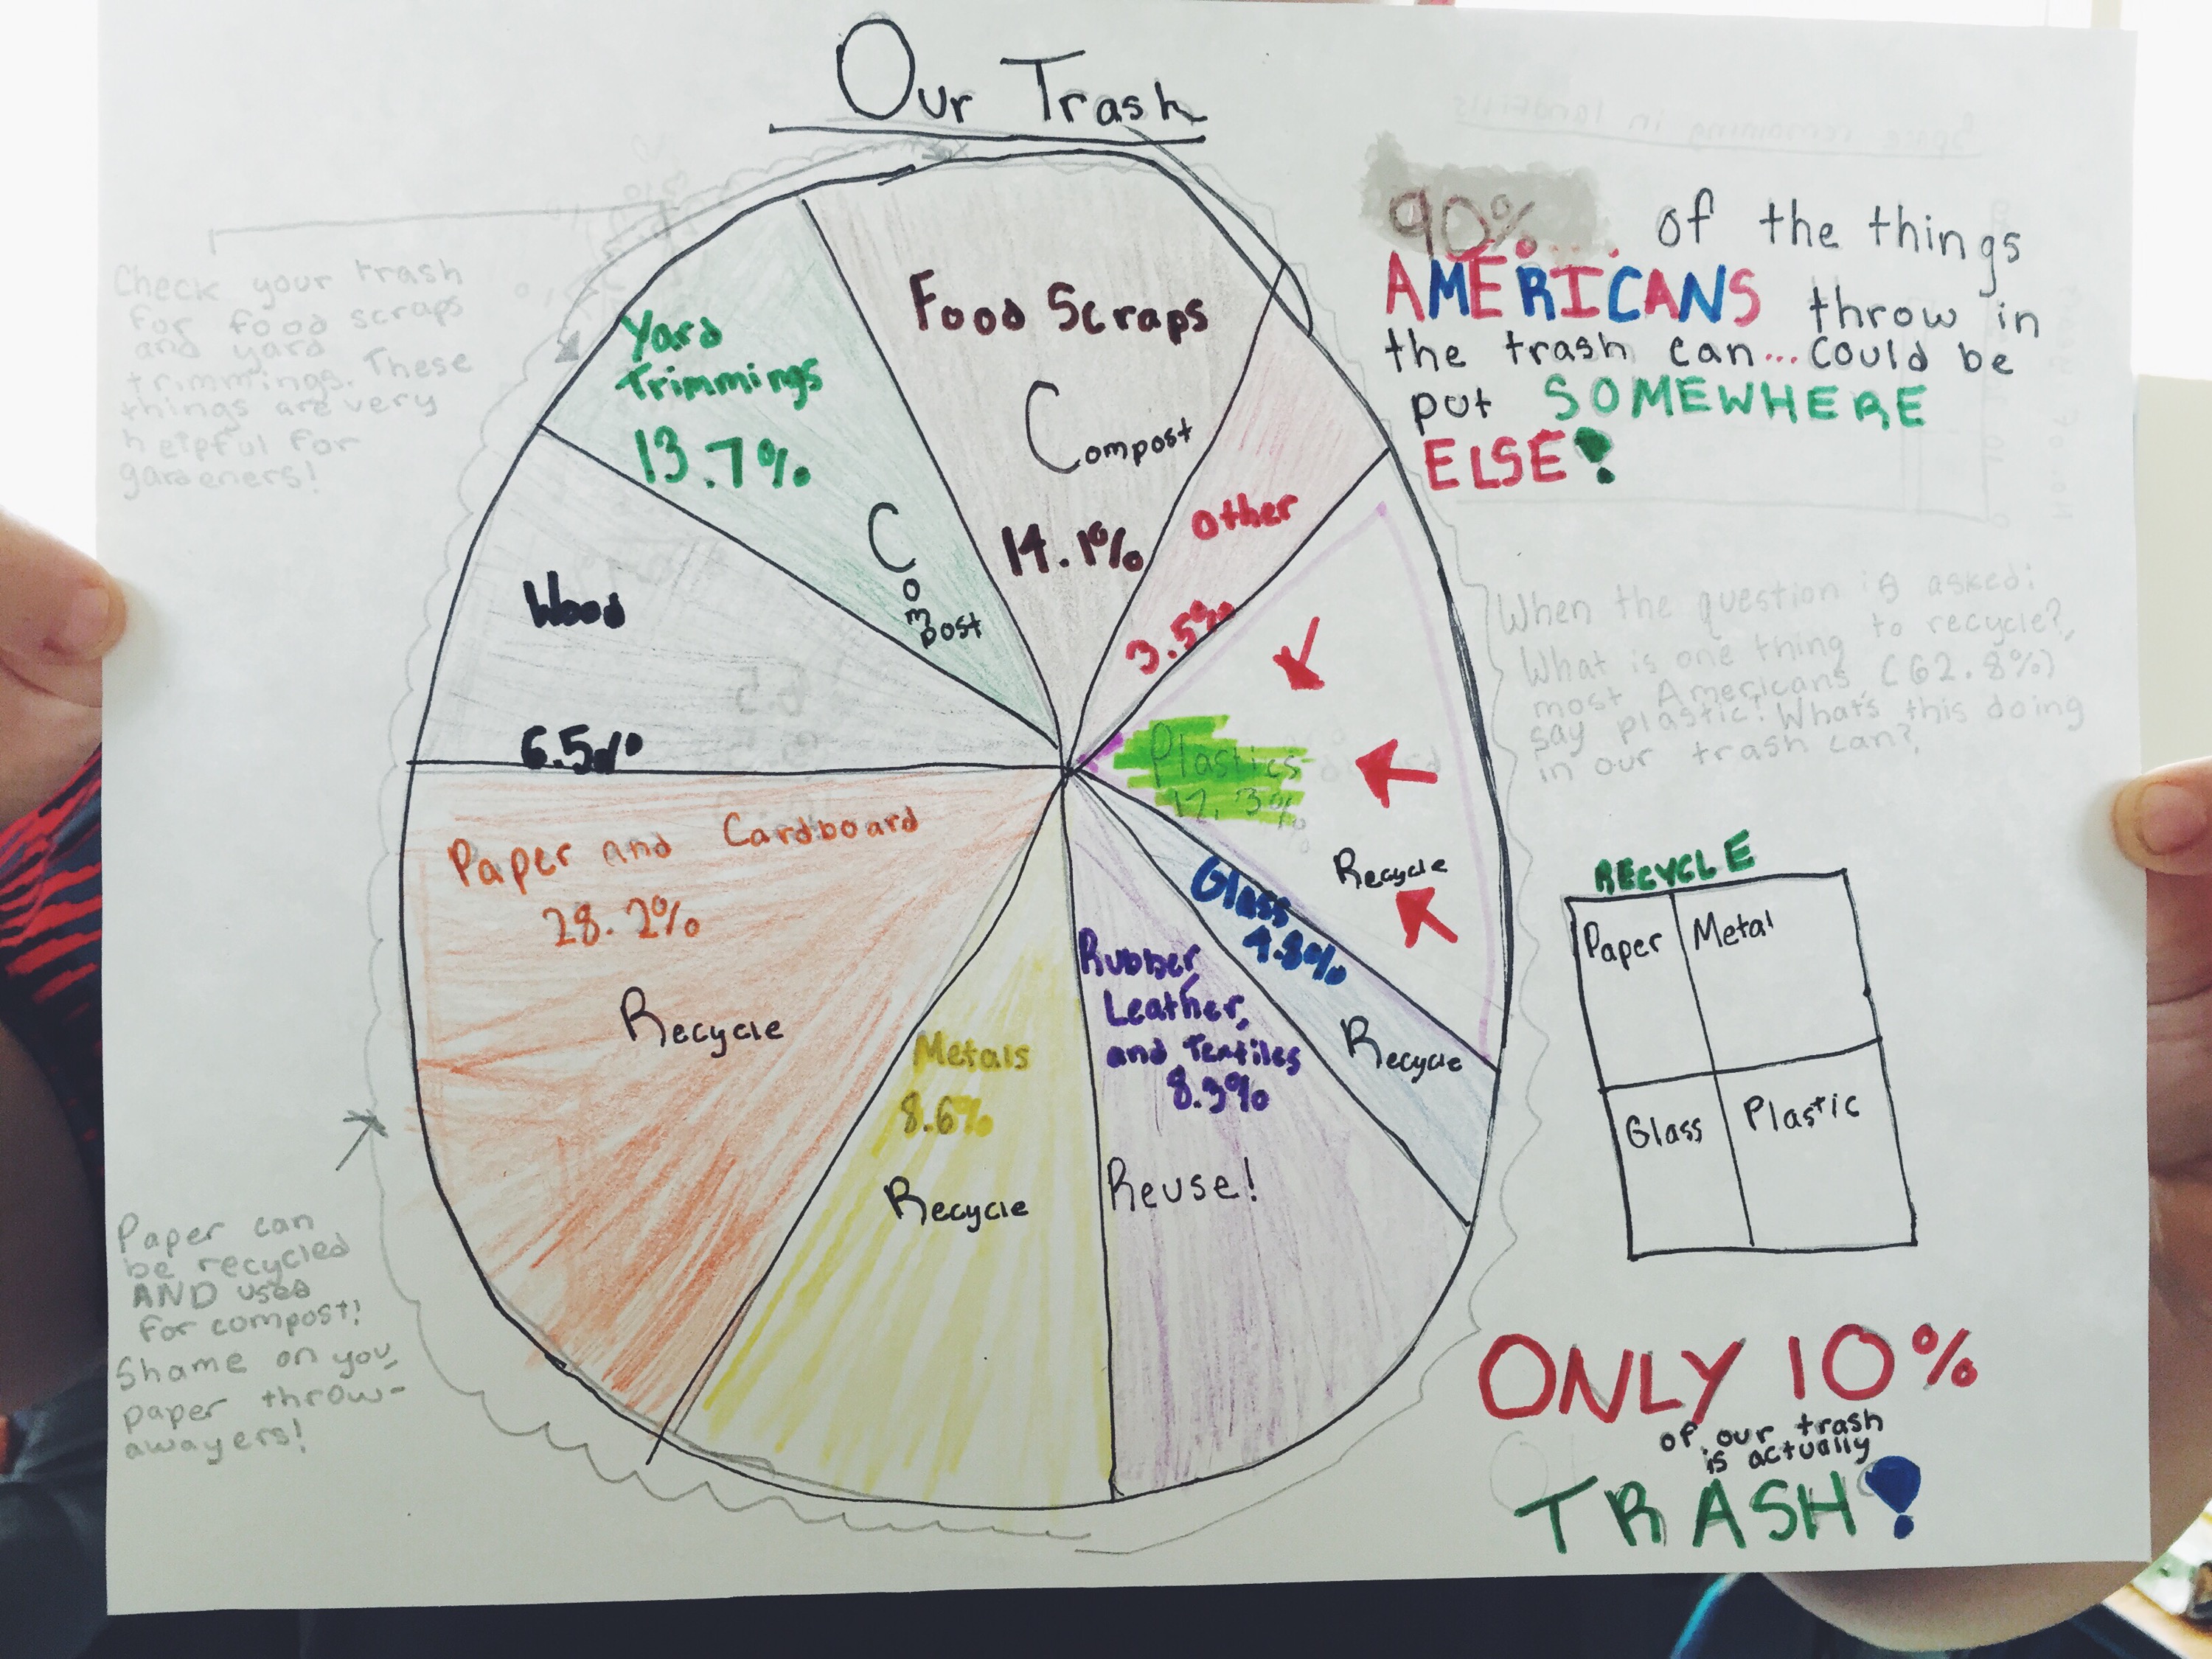 Our Trash
90%... of the things
AMERICANS throw in
the trash can...could be
put SOMEWHERE
ELSE!
Check your trash
for food scraps
and yard
trimmings. These
things are very
helpful for
gardeners!
Yard
Trimmings
13.7%
Compost
Food Scraps
Compost
14.1%
other
3.5%
Wood
6.5%
Plastics
12.3%
Recycle
When the question is asked:
What is one thing to recycle?,
most Americans (62.8%)
say plastic! What's this doing
in our trash can?
Glass
4.8%
Recycle
Paper and Cardboard
28.2%
Recycle
Metals
8.6%
Recycle
Rubber,
Leather,
and Textiles
8.3%
Reuse!
RECYCLE
Paper Metal
Glass Plastic
Paper can
be recycled
AND used
for compost!
Shame on you,
paper throw-
awayers!
ONLY 10%
of our trash
is actually
TRASH!